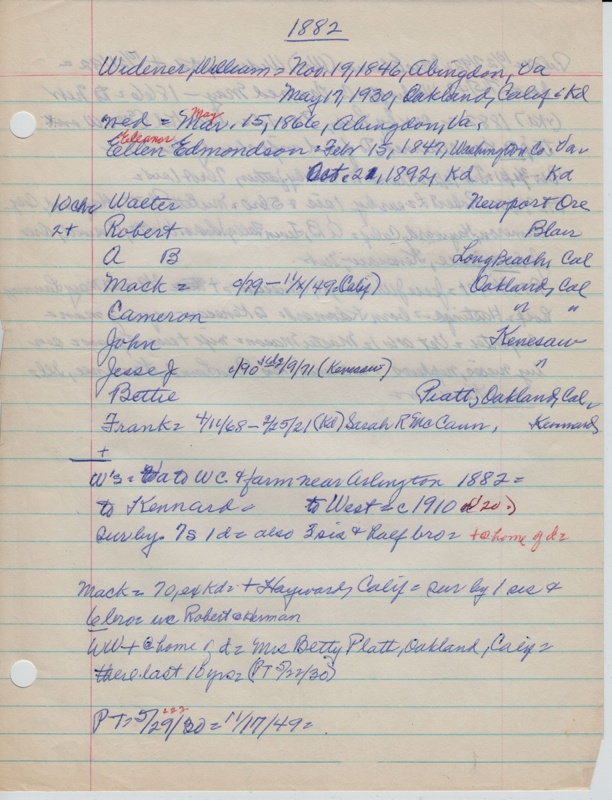 1882
Widener, William = Nov. 19, 1846, Abingdon, Va
May 17, 1930, Oakland, Calif = Kd
med = Mar. 15, 1866, Abingdon, Va.
May
Eleanor
Ellen Edmondson = Feb 15, 1847, Washington Co, Va
Oct. 22, 1892, Kd Kd
10 ch Walter Newport Ore
2 + Robert Blair
A B Long Beach, Cal
Mack = c/79 - 11/2/49 (Calif) Oakland, Cal
Cameron " "
John Kenesaw
Jesse J c/90 7/9/71 (Kenesaw) "
Bettie Pratt, Oakland, Cal,
Frank = 4/11/68 - 2/25/21 (Kd) Sarah R McCann, Kennard
+
W's = Va to W C & farm near Arlington 1882 =
to Kennard = to West = c 1910 ('20?)
Sur by 7 s 1 d = also 3 sis & half bro = + @ home of d =
Mack = 70, ex Kd = + Hayward, Calif = sur by 1 sis &
6 bro = inc Robert & Herman
WW + @ home of d = Mrs Betty Platt, Oakland, Calif =
there last 10 yrs = (PT 5/22/30)
PT = 5/29/30 = 11/17/49 =